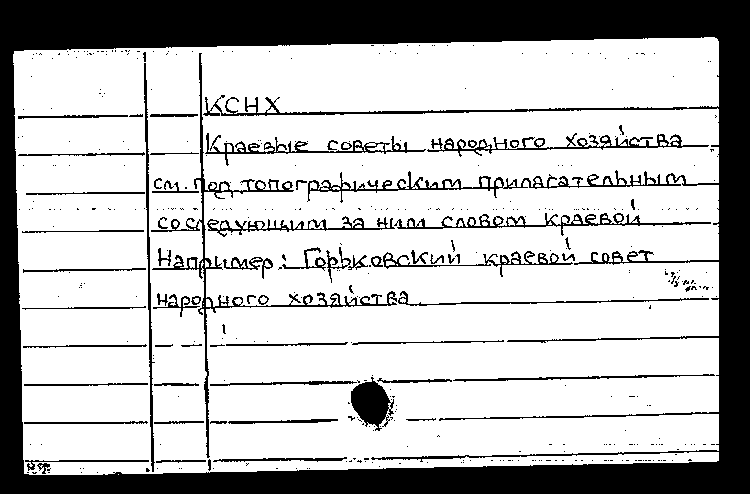 КСНХ
Краевые советы народного хозяйства
см. под топографическим прилагательным
со следующим за ним словом краевой
Например: Горьковский краевой совет
народного хозяйства.